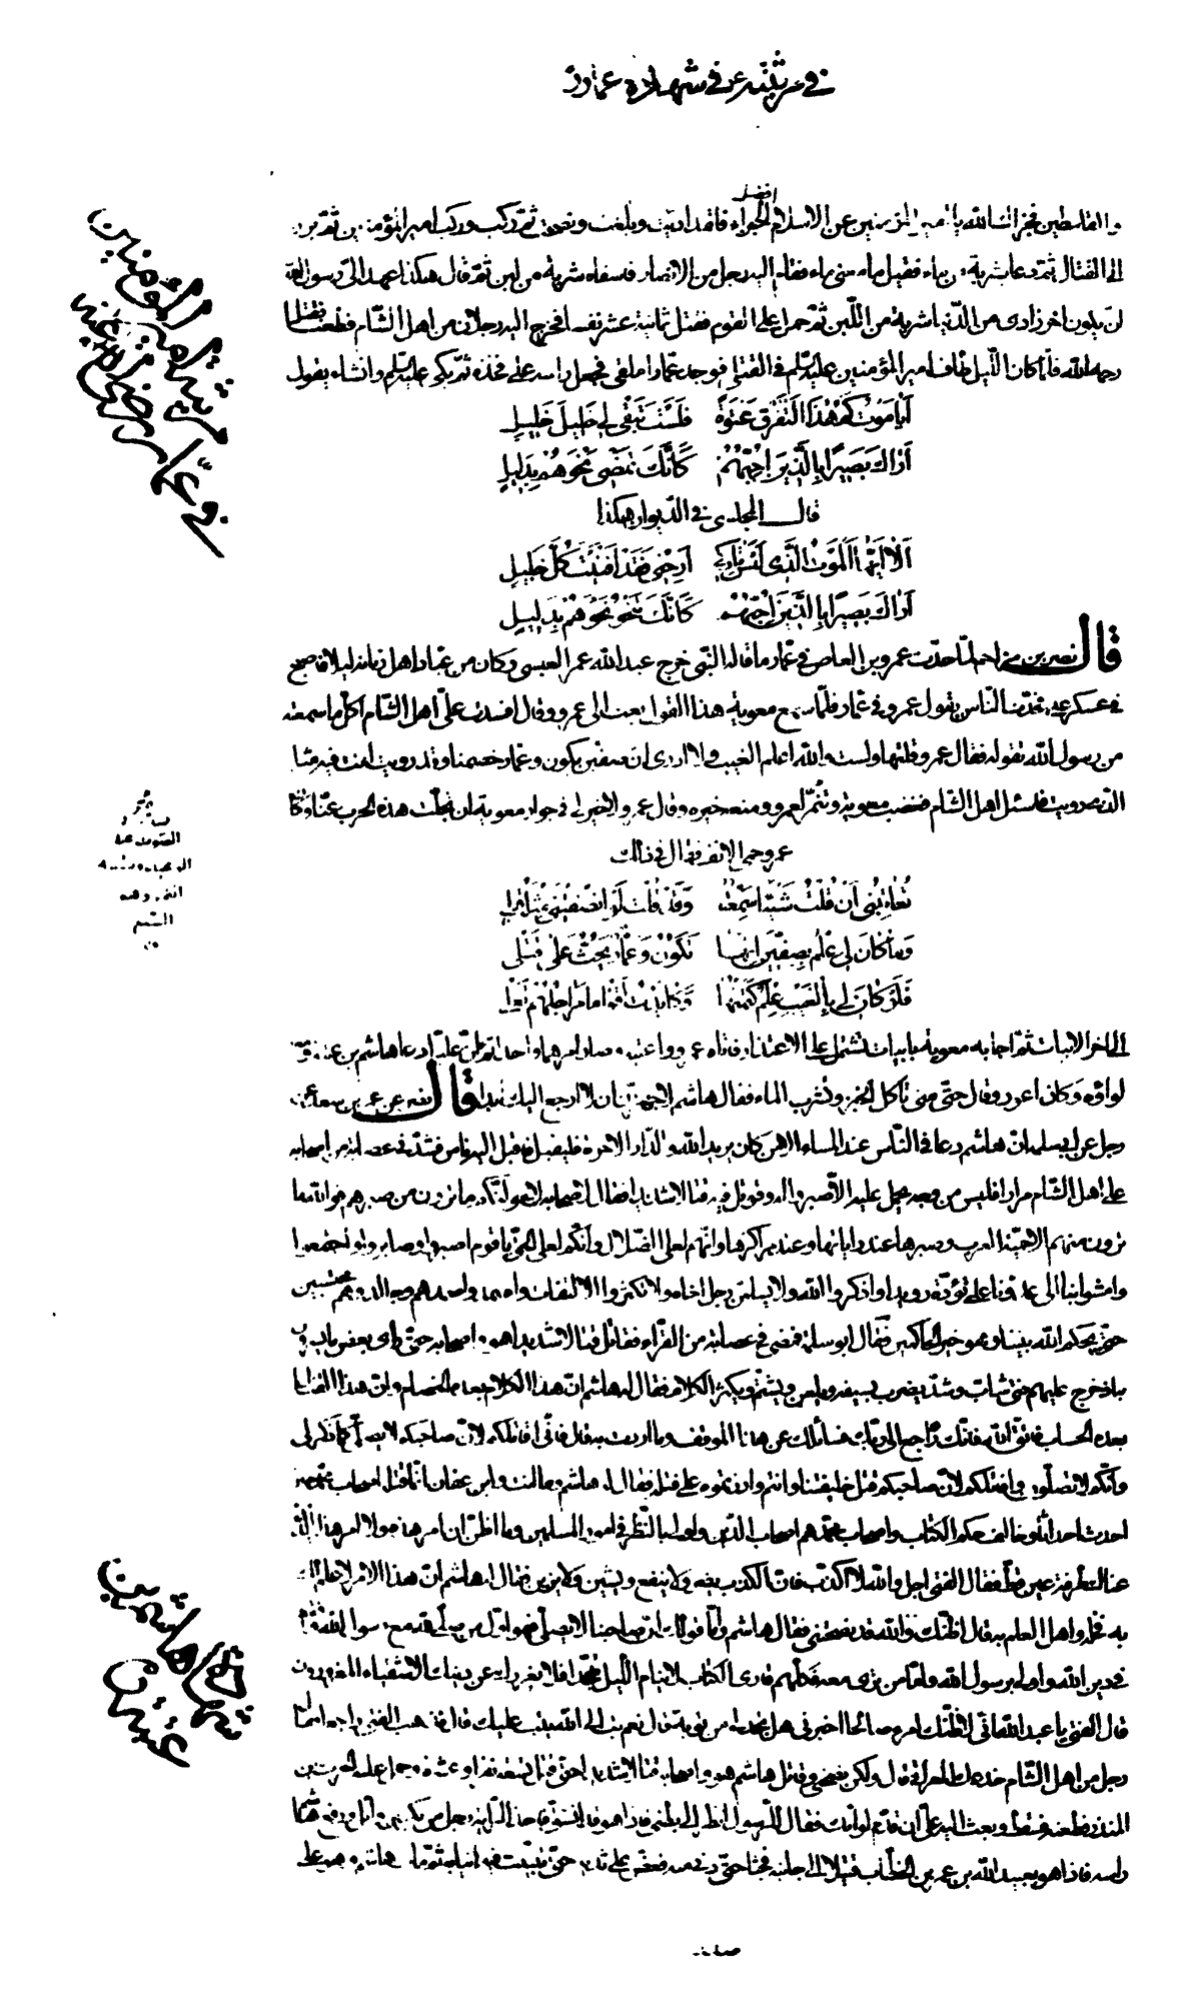 في مرثيته ع في شهادة عمار
افضل
والقاسطين فجزاك الله يا امير المؤمنين عن الاسلام الجزاء فلقد اديت وبلغت ونصحت ثم ركب وركب امير المؤمنين ثم برز
الى القتال ثم دعا بشربة من ماء فقيل ما معنى ماء فقام اليه رجل من الانصار فسقاه شربة من لبن ثم قال هكذا عهد الى رسول الله
ان يكون اخر زادى من الدنيا شربة من اللبن ثم حمل على القوم فقتل ثمانية عشر نفسا فخرج اليه رجلان من اهل الشام فطعناه فقتل
رحمه الله فلما كان الليل طاف امير المؤمنين عليه السلم في القتلى فوجد عمارا ملقى فجعل راسه على فخذه ثم بكى عليه السلم وانشاء يقول
أيا موت كم هذا التفرق عنوة فلست تبقى لي خليل خليل
أراك بصيرا بالذين احبهم كأنك تمضي نحوهم بدليل
قال المجلسى في الديوان هكذا
ألا أيها الموت الذى ليس تاركي أرحني فقد أفنيت كل خليل
أراك بصيرا بالذين احبهم كأنك تنحو نحوهم بدليل
قال نصر بن مزاحم لما حدث عمرو بن العاص في عمار ما قاله النبي خرج عبد الله عمر العبسى وكان من عباد اهل زمانه ليلا فاصبح
في عسكر على فحدث الناس بقول عمرو في عمار فلما سمع معوية هذا القول بعث الى عمرو وقال افسدت على اهل الشام اكل ما سمعته
من رسول الله تقوله فقال عمرو قلتها ولست والله اعلم الغيب ولا ادرى ان صفين يكون وعمار خصمنا وقد رويت انت فيه مثل
الذى رويت فاسئل اهل الشام فغضب معوية وتنمر لعمرو ومنعه خيره وقال عمرو لا خير لى في جوار معوية ان تجلت هذه الحرب عنا وكان
عمرو حمى الانف فقال في ذلك
تعاتبني أن قلت شيئا سمعته وقد قلت لو انصفتني مثله قبلى
وما كان لى علم بصفين انها تكون وعمار يحث على قتلى
فلو كان لي بالغيب علم كتمتها وكابدت أقواما مراجلهم تغلى
الى اخر الابيات ثم اجابه معوية بابيات تشتمل على الاعتذار فاتاه عمرو واعتبه وصار امرهما واحدا ثم ان عليا دعا هاشم بن عتبة ومعه
لواؤه وكان اعور وقال حتى متى تأكل الخبز وتشرب الماء فقال هاشم لاجهدن ان لا ارجع اليك ابدا قال نصر عن عمر بن سعد عن
رجل عن ابى سلمه ان هاشم دعا في الناس عند المساء الا من كان يريد الله والدار الاخرة فليقبل فاقبل اليه ناس فشد في عصابة من اصحابه
على اهل الشام مرارا فليس من وجه يحمل عليه الا صبروا له وقوتل فيه قتالا شديدا فقال لاصحابه لا يهولنكم ما ترون من صبرهم فوالله ما
ترون منهم الا حمية العرب وصبرها عند راياتها وعند مراكزها وانهم لعلى الضلال وانكم لعلى الحق يا قوم اصبروا وصابروا واجتمعوا
وامشوا بنا الى عدونا على تؤدة رويدا واذكروا الله ولا يسلمن رجل اخاه ولا تكثروا الالتفات واصمدوا صمدهم وجالدوهم محتسبين
حتى يحكم الله بيننا وهو خير الحاكمين فقال ابو سلمة فمضى في عصابة من القراء فقاتل قتالا شديدا هو واصحابه حتى راى بعض ما يسرون
به اذ خرج عليهم فتى شاب وشد يضرب بسيفه ويلعن ويشتم ويكثر الكلام فقال له هاشم ان هذا الكلام بعده الخصام وان هذا القتال
بعده الحساب فاتق الله فانك راجع الى ربك فسائلك عن هذا الموقف وما اردت به قال فانى اقاتلكم لان صاحبكم لا يصلى كما ذكر لى
وانكم لا تصلون واقاتلكم لان صاحبكم قتل خليفتنا وانتم وازرتموه على قتله فقال له هاشم وما انت وابن عفان انما قتله اصحاب محمد حين
احدث احداثا وخالف حكم الكتاب واصحاب محمد هم اصحاب الدين واولى بالنظر في امور المسلمين وما اظن ان امر هذه الامة ولا امر هذا الدين
عناك طرفة عين قط فقال الفتى اجل والله لا اكذب فان الكذب يضر ولا ينفع ويشين ولا يزين فقال له هاشم ان هذا الامر لا علم لك
به فخله واهل العلم به قال اظنك والله قد نصحتنى فقال هاشم واما قولك ان صاحبنا لا يصلى فهو اول من صلى مع رسول الله وافقهه
في دين الله واولى برسول الله واما من ترى معه فكلهم قارى الكتاب لا ينام الليل تهجدا فلا يغررك عن دينك الاشقياء المغرورون
قال الفتى يا عبد الله انى لاظنك امرء صالحا اخبرنى هل تجد لى من توبة قال نعم تب الى الله يتب عليك قال فذهب الفتى راجعا فقال
رجل من اهل الشام خدعك العراقى قال ولكن نصحنى وقاتل هاشم هو واصحابه قتالا شديدا حتى قتل تسعة نفر او عشرة وحمل عليه الحرث بن
المنذر فطعنه فسقط وبعث اليه على ان قدم لوائك فقال للرسول انظر الى بطنى فاذا هو قد انشق فاخذ الراية رجل من بكر بن وائل ورفع هاشم
راسه فاذا هو بعبيد الله بن عمر بن الخطاب قتيلا الى جانبه فجثا حتى دنى منه فعض على ثديه حتى نيبت فيه انيابه ثم مات هاشم وهو على
مرثية امير المؤمنين
في عمار رضى الله عنه
شهادة هاشم بن
عتبة